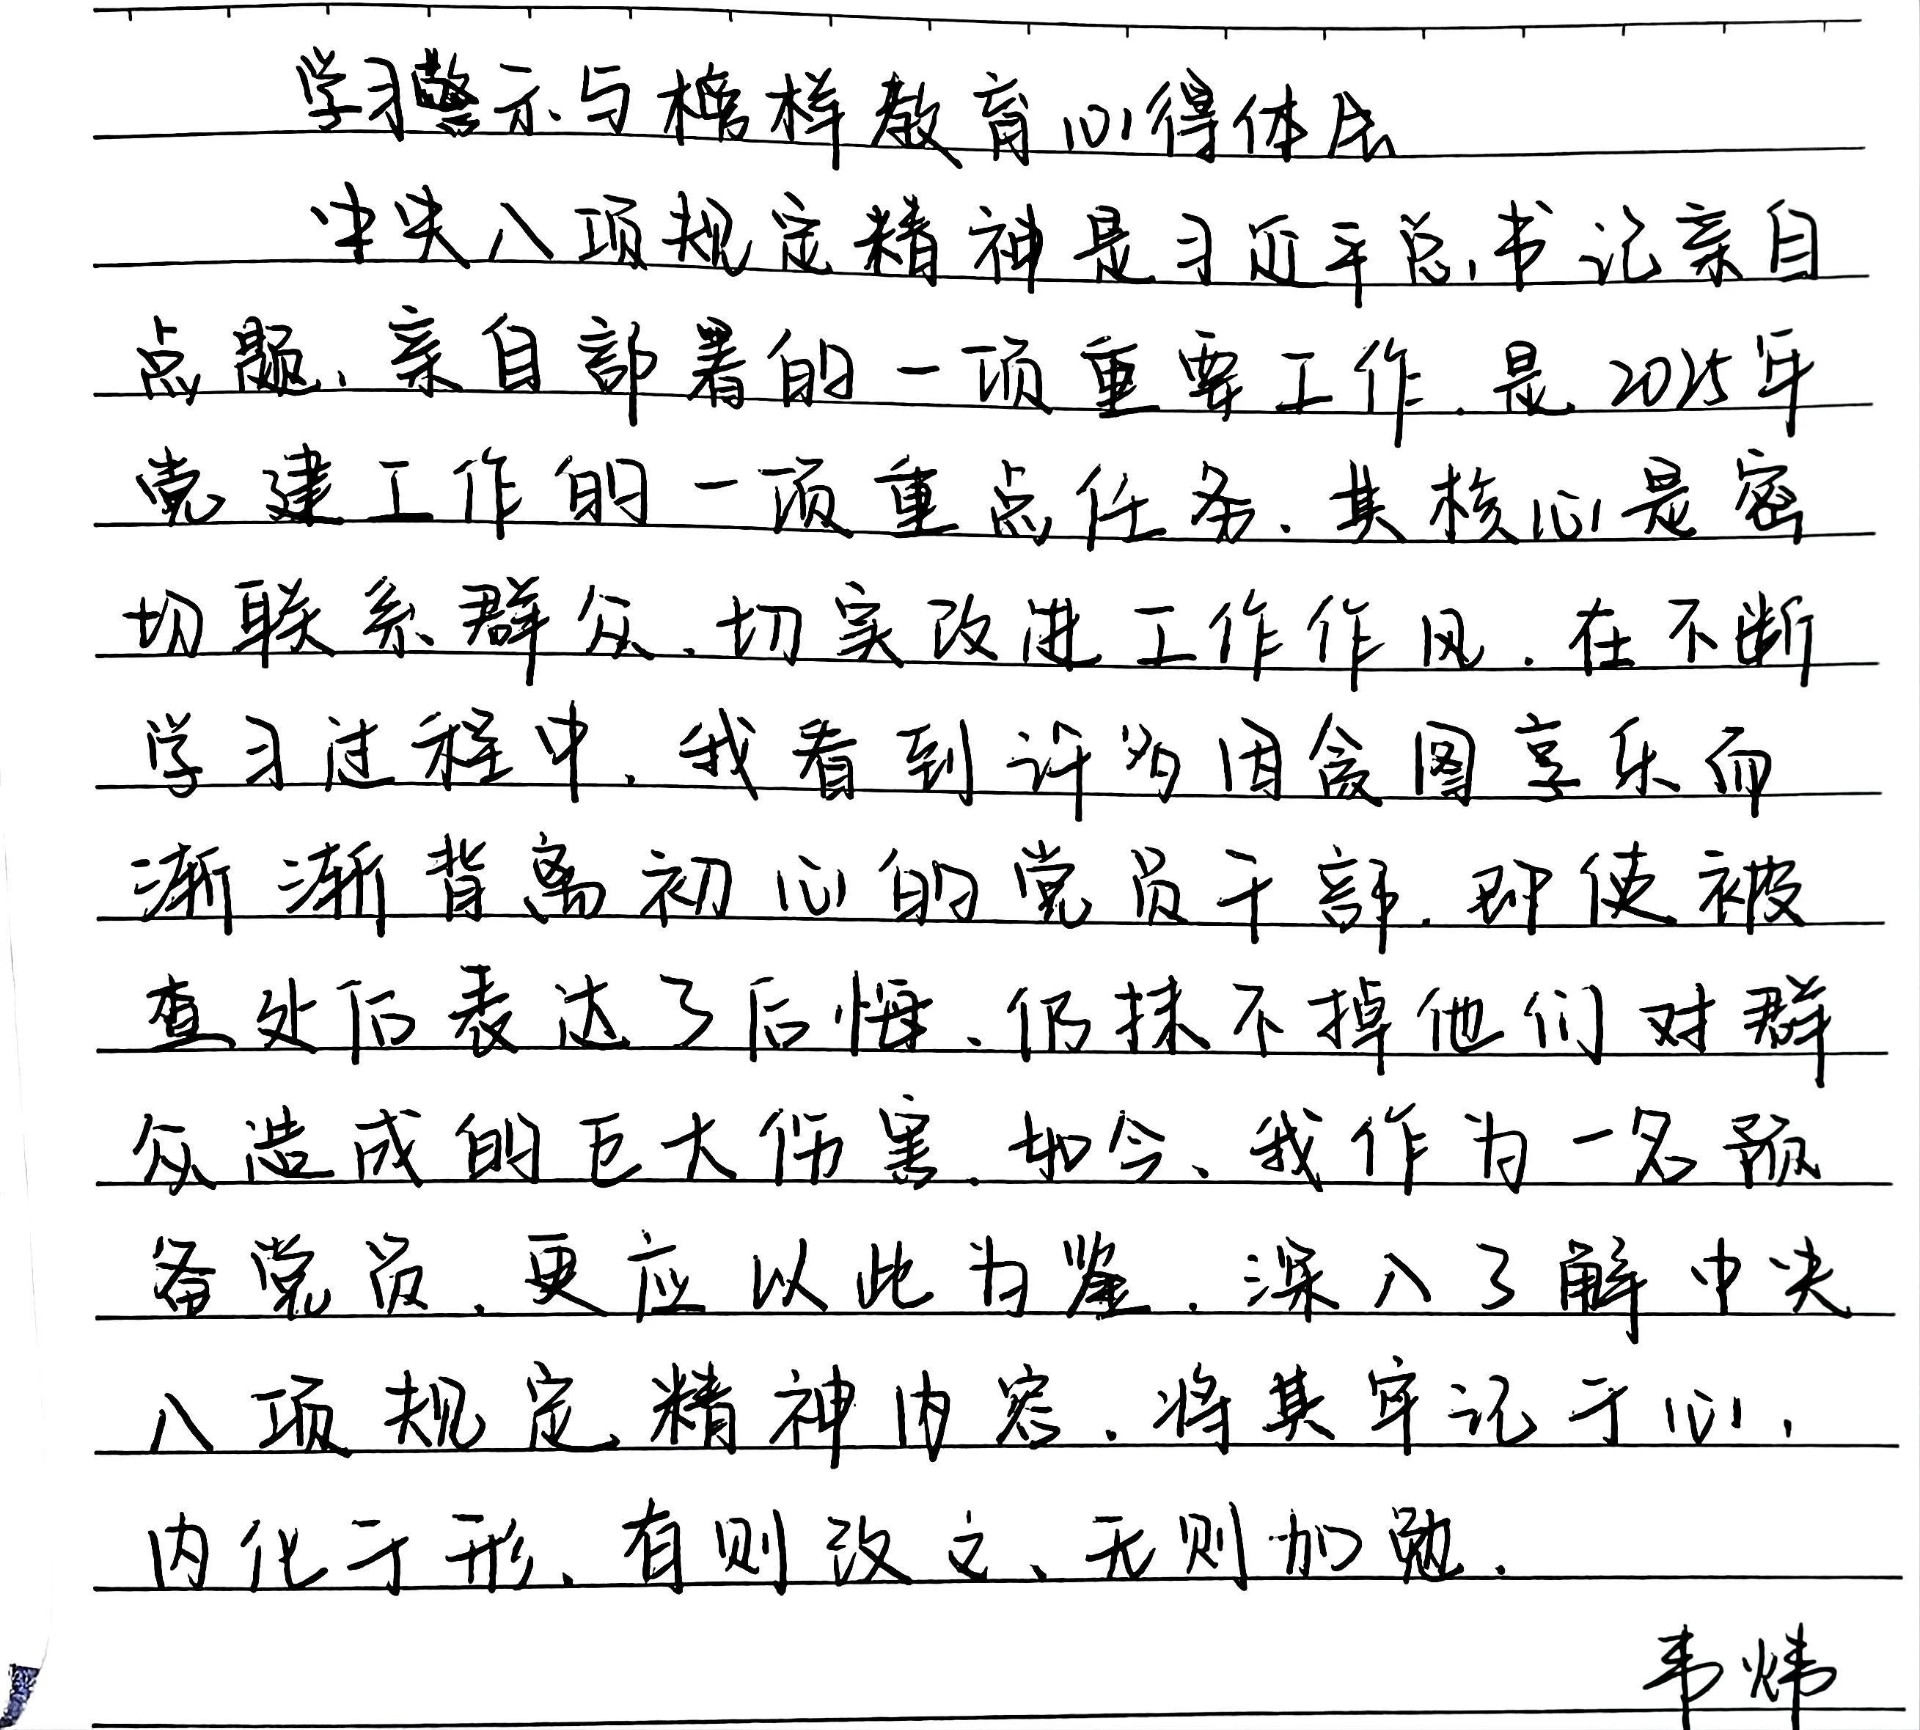 学习警示与榜样教育心得体会
中央八项规定精神是习近平总书记亲自
点题、亲自部署的一项重要工作，是2025年
党建工作的一项重点任务，其核心是密
切联系群众，切实改进工作作风，在不断
学习过程中，我看到许多因贪图享乐而
渐渐背离初心的党员干部，即使被
查处后表达了后悔，仍抹不掉他们对群
众造成的巨大伤害。如今，我作为一名预
备党员，更应以此为鉴，深入了解中央
八项规定精神内容，将其牢记于心，
内化于形，有则改之，无则加勉。
韦炜